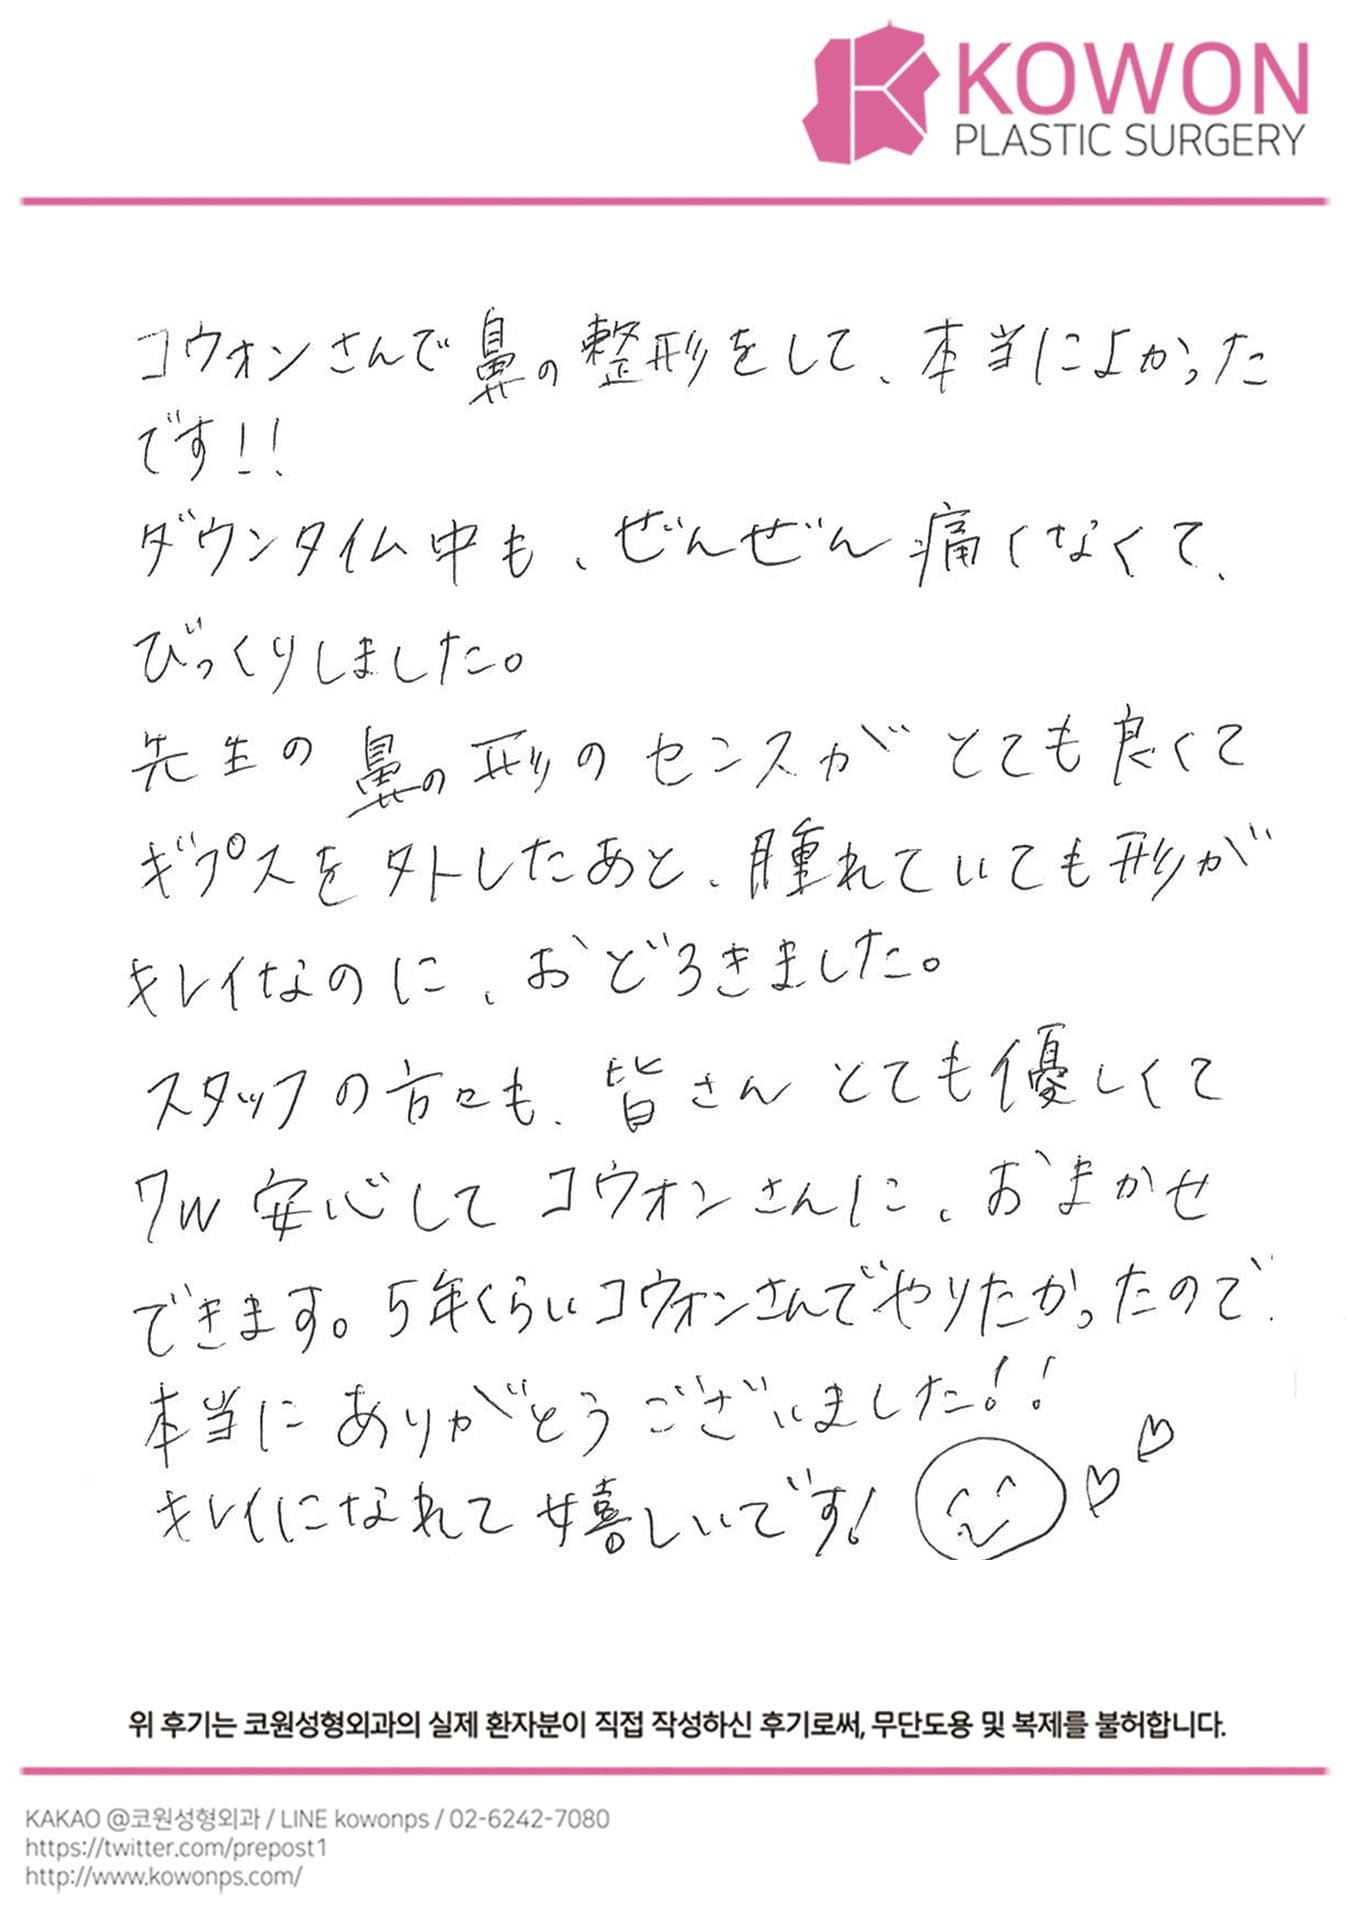 KOWON
PLASTIC SURGERY
コウォンさんで鼻の整形をして、本当によかった
です!!
ダウンタイム中も、ぜんぜん痛くなくて、
びっくりしました。
先生の鼻の形のセンスがとても良くて
ギプスを外したあと、腫れていても形が
キレイなのに、おどろきました。
スタッフの方々も、皆さんとても優しくて
安心してコウォンさんに、おまかせ
できます。5年くらいコウォンさんでやりたかったので
本当にありがとうございました!!
キレイになれて嬉しいです!
위 후기는 코원성형외과의 실제 환자분이 직접 작성하신 후기로써, 무단도용 및 복제를 불허합니다.
KAKAO @코원성형외과 / LINE kowonps / 02-6242-7080
https://twitter.com/prepost1
http://www.kowonps.com/